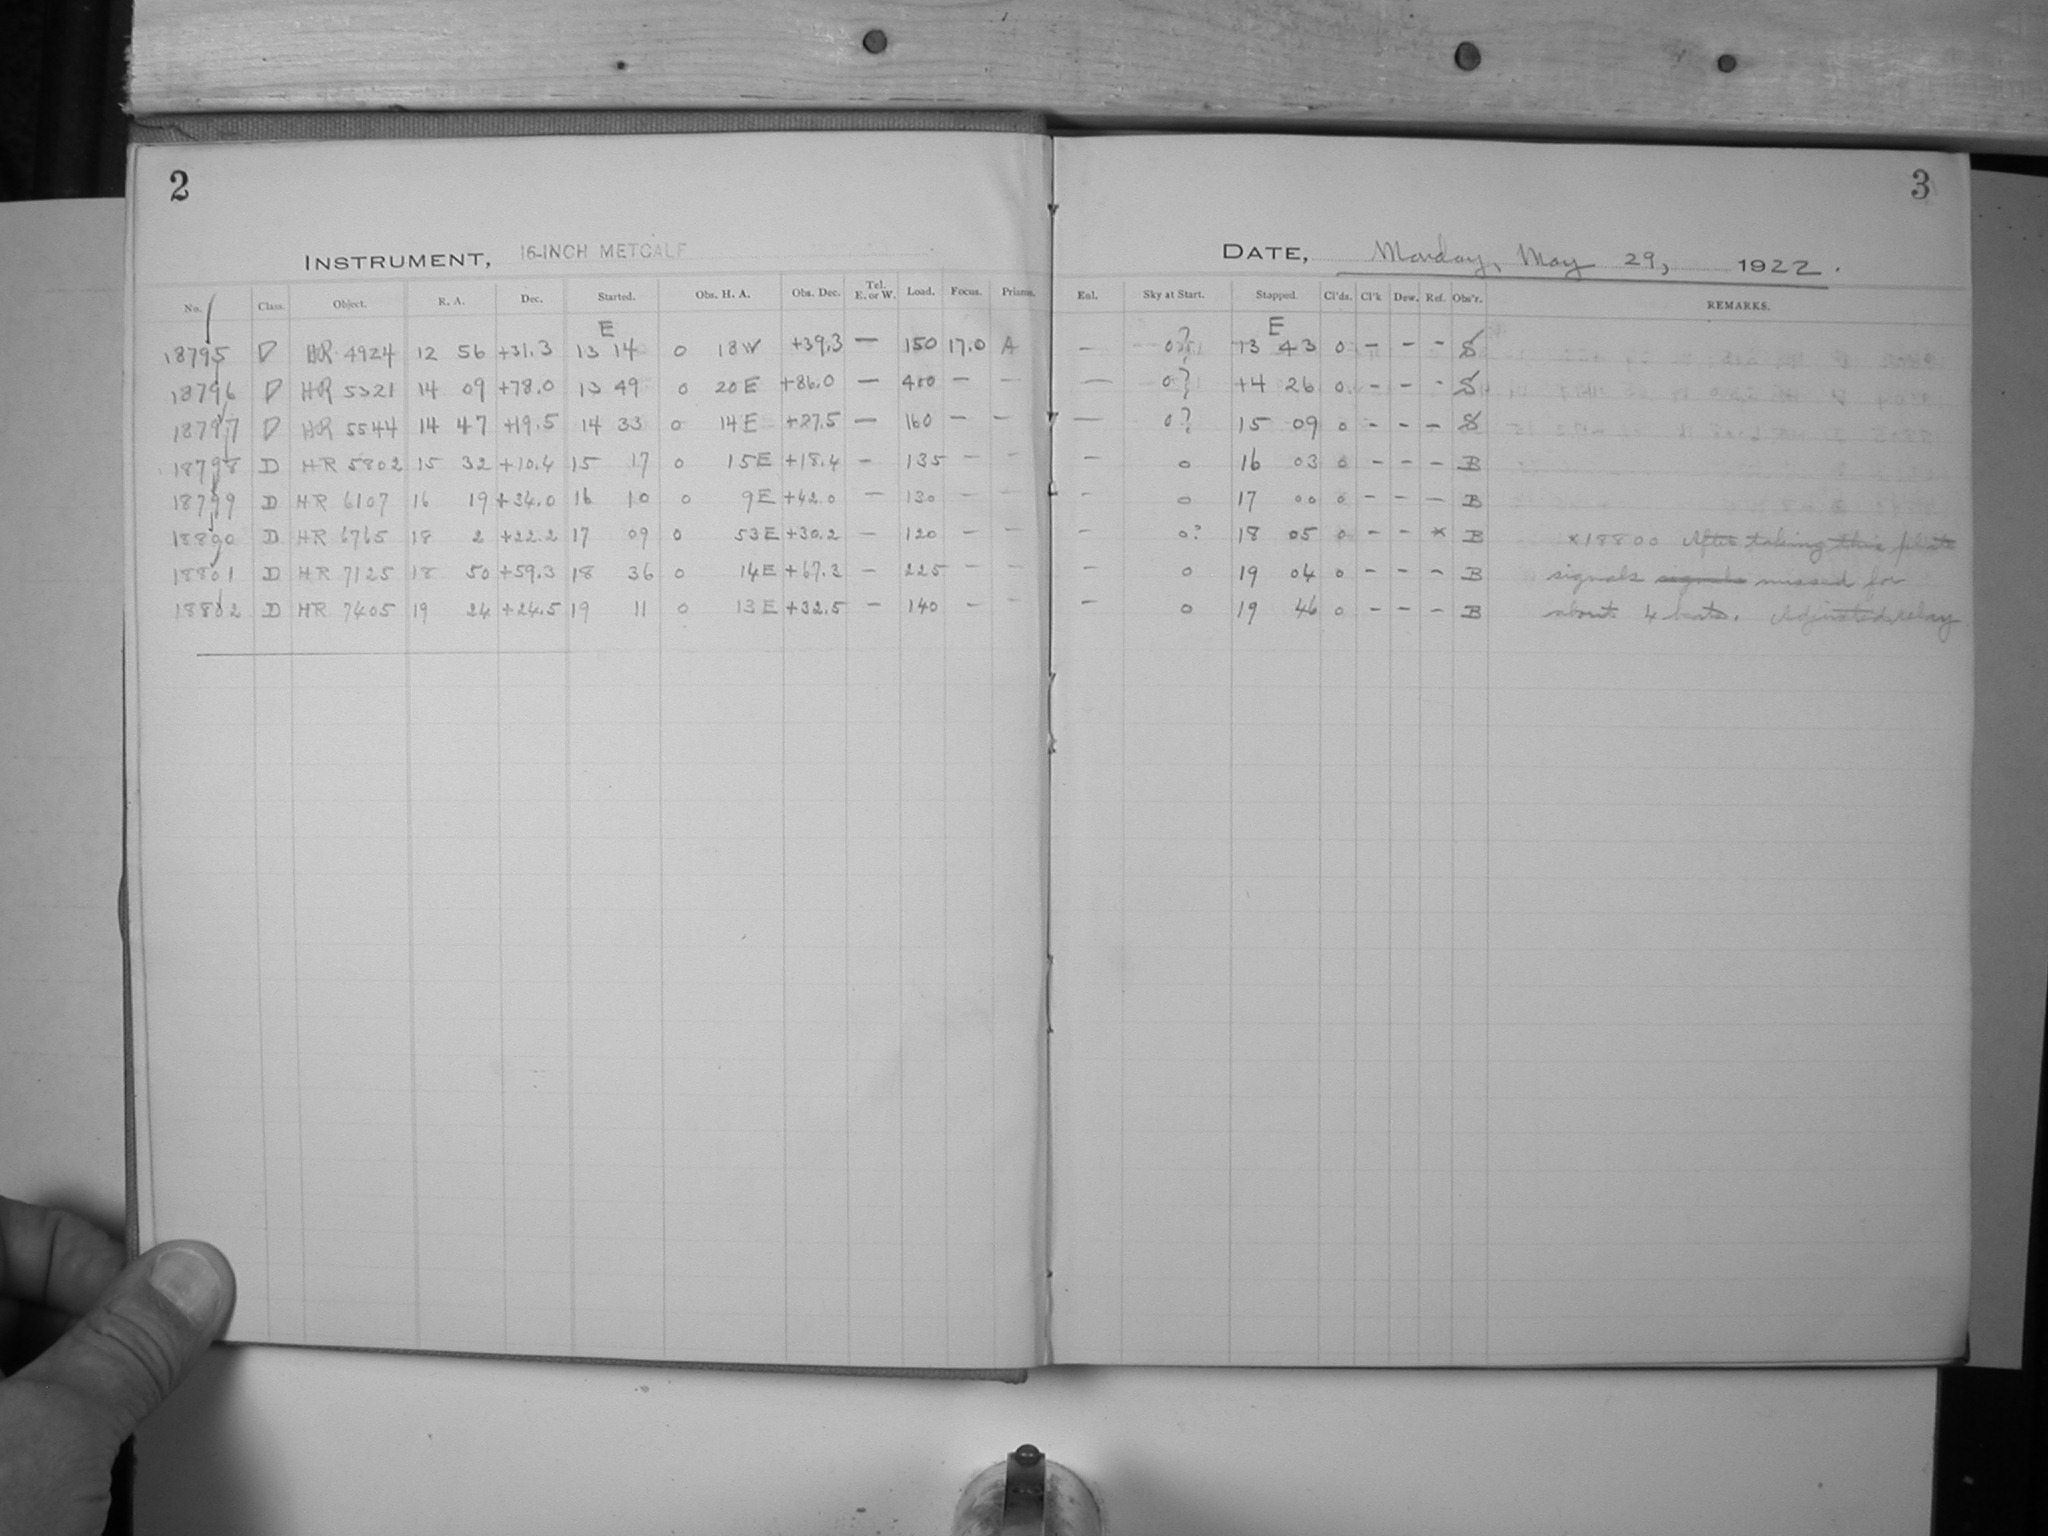 2
3
INSTRUMENT, 16-INCH METCALF
DATE, Monday, May 29, 1922.
No. Class. Object. R. A. Dec. Started. Obs. H. A. Obs. Dec. Tel. E. or W. Load. Focus. Prisms. Enl. Sky at Start. Stopped. Cl'ds. Cl'k Dew. Ref. Obs'r. REMARKS.
E E
18795 D HR 4924 12 56 +31.3 13 14 0 18W +39.3 — 150 17.0 A — 0? 13 43 0 — — — S
18796 D HR 5321 14 09 +78.0 13 49 0 20E +86.0 — 400 — — — 0? 14 26 0 — — — S
18797 D HR 5544 14 47 +19.5 14 33 0 14E +27.5 — 160 — — — 0? 15 09 0 — — — S
18798 D HR 5802 15 32 +10.4 15 17 0 15E +18.4 — 135 — — — 0 16 03 0 — — — B
18799 D HR 6107 16 19 +34.0 16 10 0 9E +42.0 — 130 — — — 0 17 00 0 — — — B
18800 D HR 6765 18 2 +22.2 17 09 0 53E +30.2 — 120 — — — 0? 18 05 0 — — × B ×18800 After taking this plate
18801 D HR 7125 18 50 +59.3 18 36 0 14E +67.3 — 225 — — — 0 19 04 0 — — — B signals signals missed for
18802 D HR 7405 19 24 +24.5 19 11 0 13E +32.5 — 140 — — — 0 19 46 0 — — — B about 4 beats. Adjusted relay